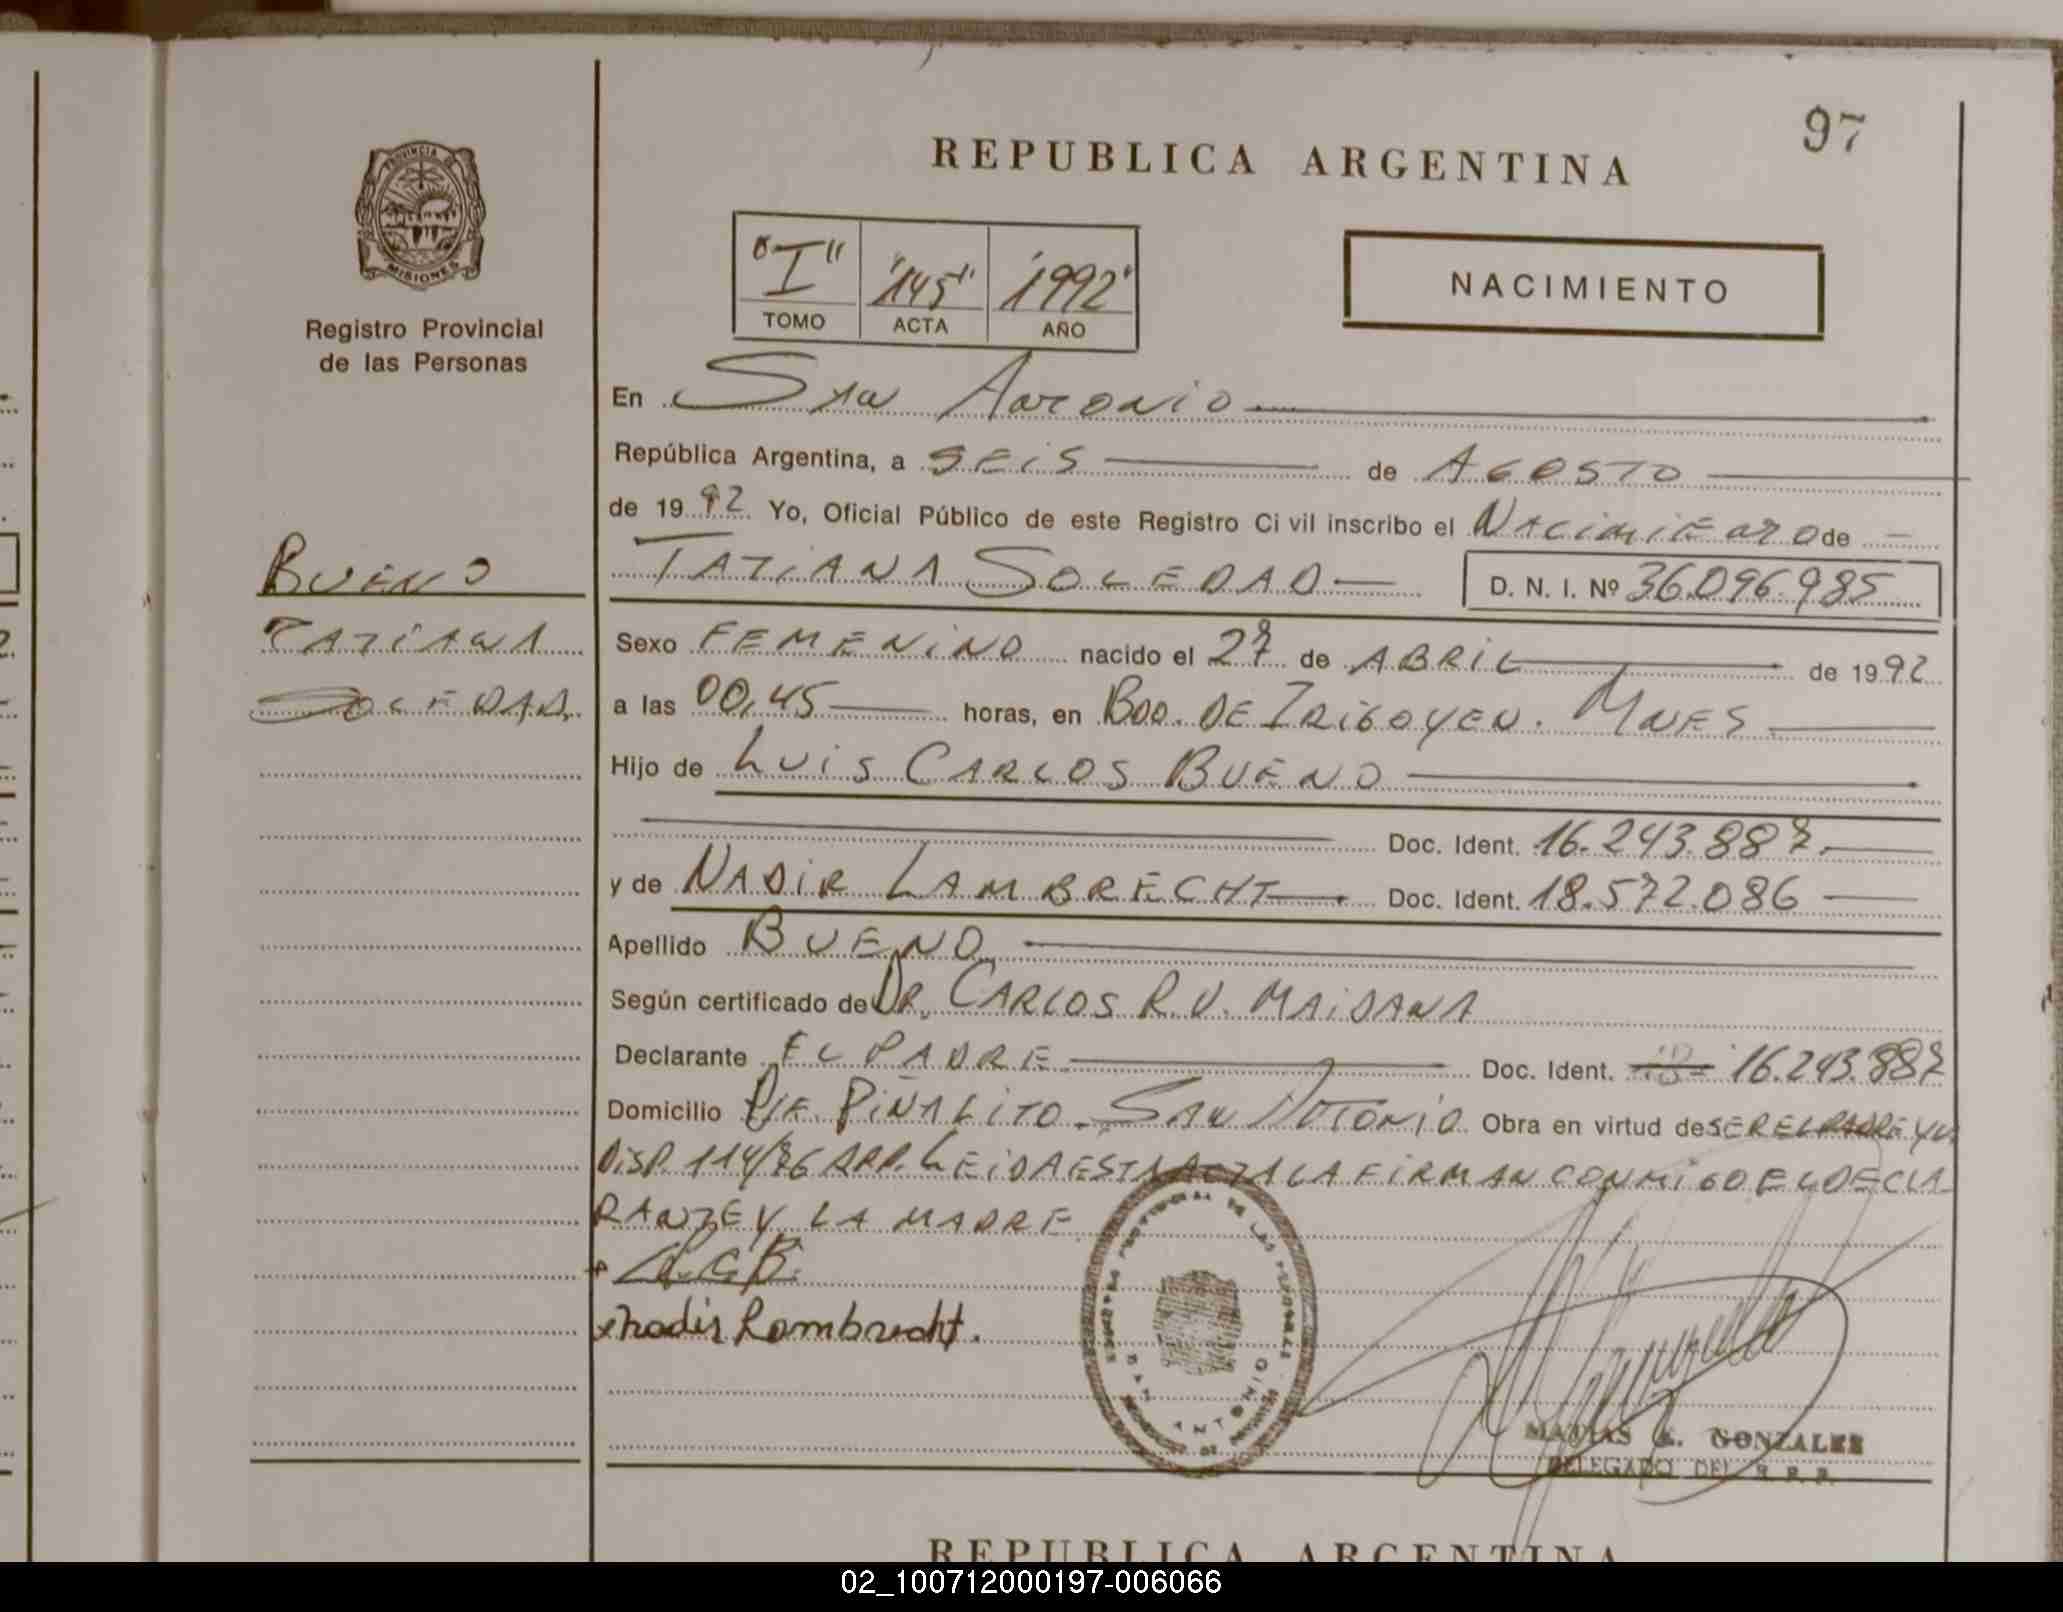 97
REPUBLICA ARGENTINA
PROVINCIA DE
MISIONES
Registro Provincial
de las Personas
"I" "145" "1992"
TOMO ACTA AÑO
NACIMIENTO
En San Antonio
República Argentina, a SEIS de AGOSTO
de 1992 Yo, Oficial Público de este Registro Civil inscribo el NACIMIENTO de
TATIANA SOLEDAD D. N. I. Nº 36.096.985
BUENO
TATIANA
SOLEDAD.
Sexo FEMENINO nacido el 27 de ABRIL de 1992
a las 00,45 horas, en BDO. DE IRIGOYEN. MNES
Hijo de LUIS CARLOS BUENO
Doc. Ident. 16.243.887.
y de NADIR LAMBRECHT Doc. Ident. 18.572.086
Apellido BUENO
Según certificado de DR. CARLOS R.V. MAIDANA
Declarante EL PADRE Doc. Ident. 16.243.887
Domicilio PJE. PIÑALITO. SAN ANTONIO Obra en virtud de SER EL PADRE Y
DISP. 114/86 RPP. LEIDA ESTA ACTA LA FIRMAN CONMIGO EL DECLA
RANTE Y LA MADRE
L.C.B.
Nadir Lambrecht.
REGISTRO PROVINCIAL DE LAS PERSONAS
SAN ANTONIO
MATIAS A. GONZALEZ
DELEGADO DEL R. P. P.
REPUBLICA ARGENTINA
02_100712000197-006066